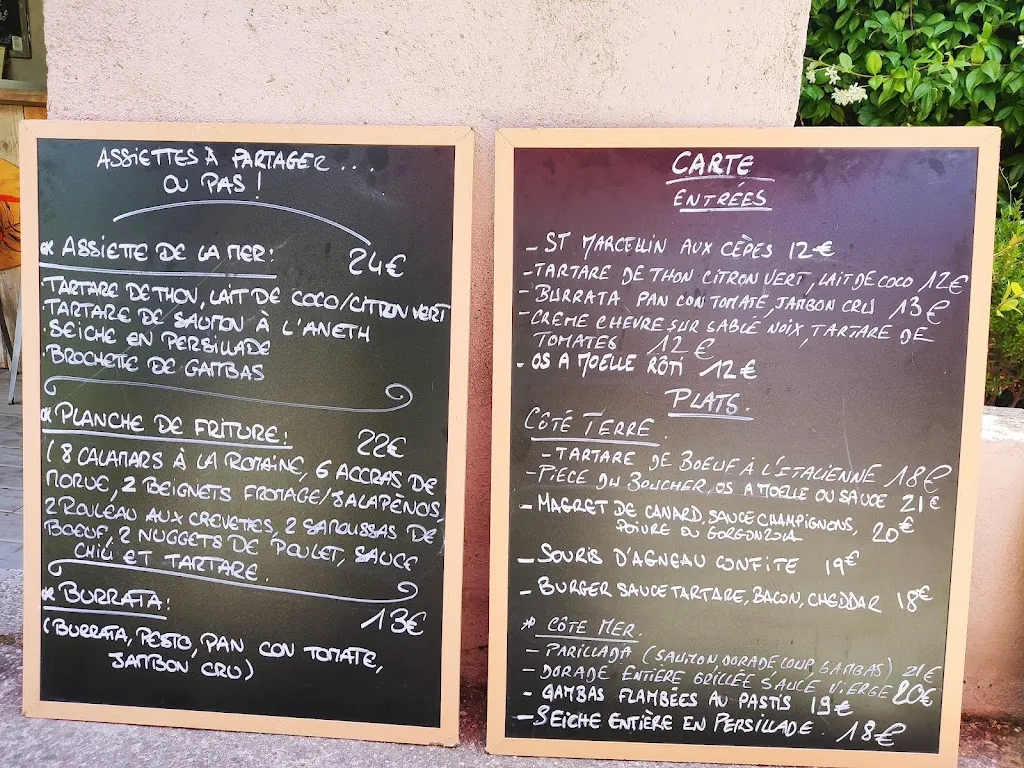 ASSIETTES À PARTAGER...
OU PAS !
* ASSIETTE DE LA MER: 24€
TARTARE DE THON, LAIT DE COCO/CITRON VERT
TARTARE DE SAUMON À L'ANETH
SEICHE EN PERSILLADE
BROCHETTE DE GAMBAS
* PLANCHE DE FRITURE: 22€
(8 CALAMARS À LA ROMAINE, 6 ACCRAS DE
MORUE, 2 BEIGNETS FROMAGE/JALAPÈNOS,
2 ROULEAU AUX CREVETTES, 2 SAMOUSSAS DE
BOEUF, 2 NUGGETS DE POULET, SAUCE
CHILI ET TARTARE.
* BURRATA: 13€
(BURRATA, PESTO, PAN CON TOMATE,
JAMBON CRU)
CARTE
ENTRÉES
- ST MARCELLIN AUX CÈPES 12€
- TARTARE DE THON CITRON VERT, LAIT DE COCO 12€
- BURRATA PAN CON TOMATE, JAMBON CRU 13€
- CRÈME CHEVRE SUR SABLÉ NOIX, TARTARE DE
TOMATES 12€
- OS A MOELLE RÔTI 12€
PLATS.
CÔTÉ TERRE.
- TARTARE DE BOEUF À L'ITALIENNE 18€
- PIÈCE DU BOUCHER, OS A MOELLE OU SAUCE 21€
- MAGRET DE CANARD, SAUCE CHAMPIGNONS,
POIVRE OU GORGONZOLA 20€
- SOURIS D'AGNEAU CONFITE 19€
- BURGER SAUCE TARTARE, BACON, CHEDDAR 18€
* CÔTÉ MER.
- PARILLADA (SAUMON, DORADE, LOUP, GAMBAS) 21€
- DORADE ENTIÈRE GRILLÉE SAUCE VIERGE 20€
- GAMBAS FLAMBÉES AU PASTIS 19€
- SEICHE ENTIÈRE EN PERSILLADE. 18€